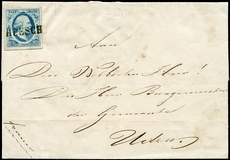 HEESCH
Aan
Den Wel Ed. Heer!
Den Heer Burgemeester
der Gemeente
Uden.